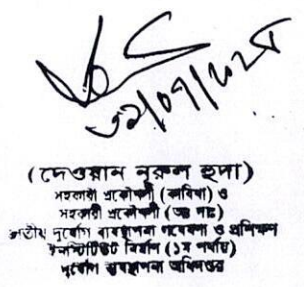 ৩১/০৭/২০২৫
(দেওয়ান নুরুল হুদা)
সহকারী প্রকৌশলী (কাবিখা) ও
সহকারী প্রকৌশলী
জাতীয় দুর্যোগ ব্যবস্থাপনা গবেষণা ও প্রশিক্ষণ
ইনস্টিটিউট নির্মাণ (১ম পর্যায়)
দুর্যোগ ব্যবস্থাপনা অধিদপ্তর